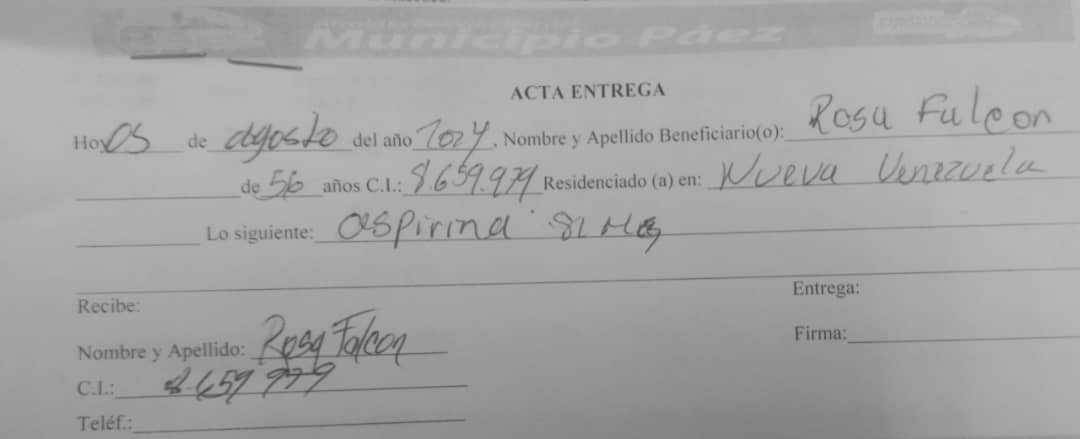 Municipio Páez
ACTA ENTREGA
Hoy 05 de agosto del año 2024, Nombre y Apellido Beneficiario(o): Rosa Falcon
de 56 años C.I.: 8.659.979 Residenciado (a) en: Nueva Venezuela
Lo siguiente: aspirina 81 Mg
Recibe:
Entrega:
Nombre y Apellido: Rosa Falcon
Firma:
C.I.: 8.659 979
Teléf.: